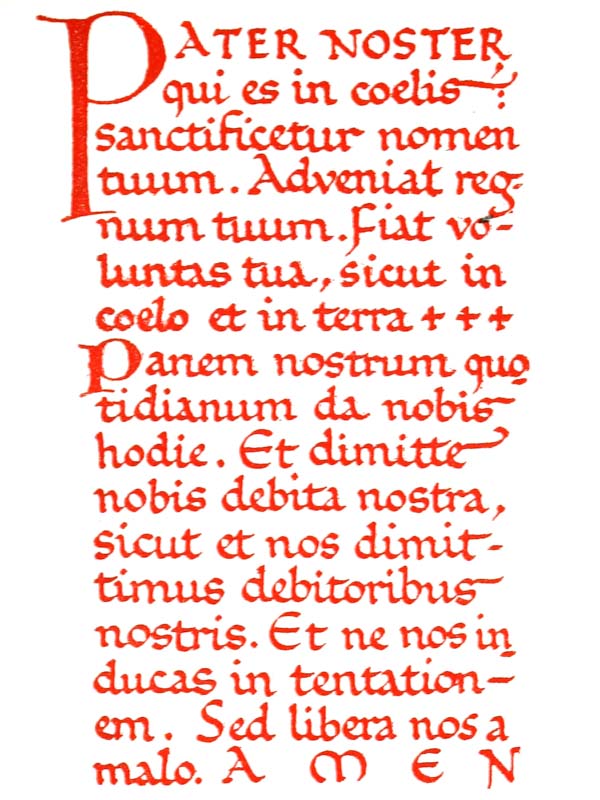 PATER NOSTER
qui es in coelis:
sanctificetur nomen
tuum. Adveniat reg-
num tuum. Fiat vo-
luntas tua, sicut in
coelo et in terra + + +
Panem nostrum quo
tidianum da nobis
hodie. Et dimitte
nobis debita nostra,
sicut et nos dimit-
timus debitoribus
nostris. Et ne nos in
ducas in tentation-
em. Sed libera nos a
malo. A M E N